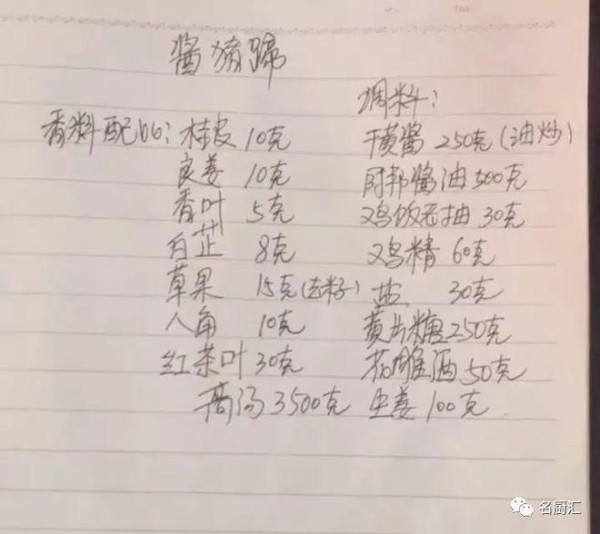 酱猪蹄
香料配比：桂皮 10克
良姜 10克
香叶 5克
白芷 8克
草果 15克(去籽)
八角 10克
红茶叶 30克
高汤 3500克
调料：
干黄酱 250克(油炒)
厨邦酱油 500克
鸡饭老抽 30克
鸡精 60克
盐 30克
黄片糖 250克
花雕酒 50克
生姜 100克
名厨汇